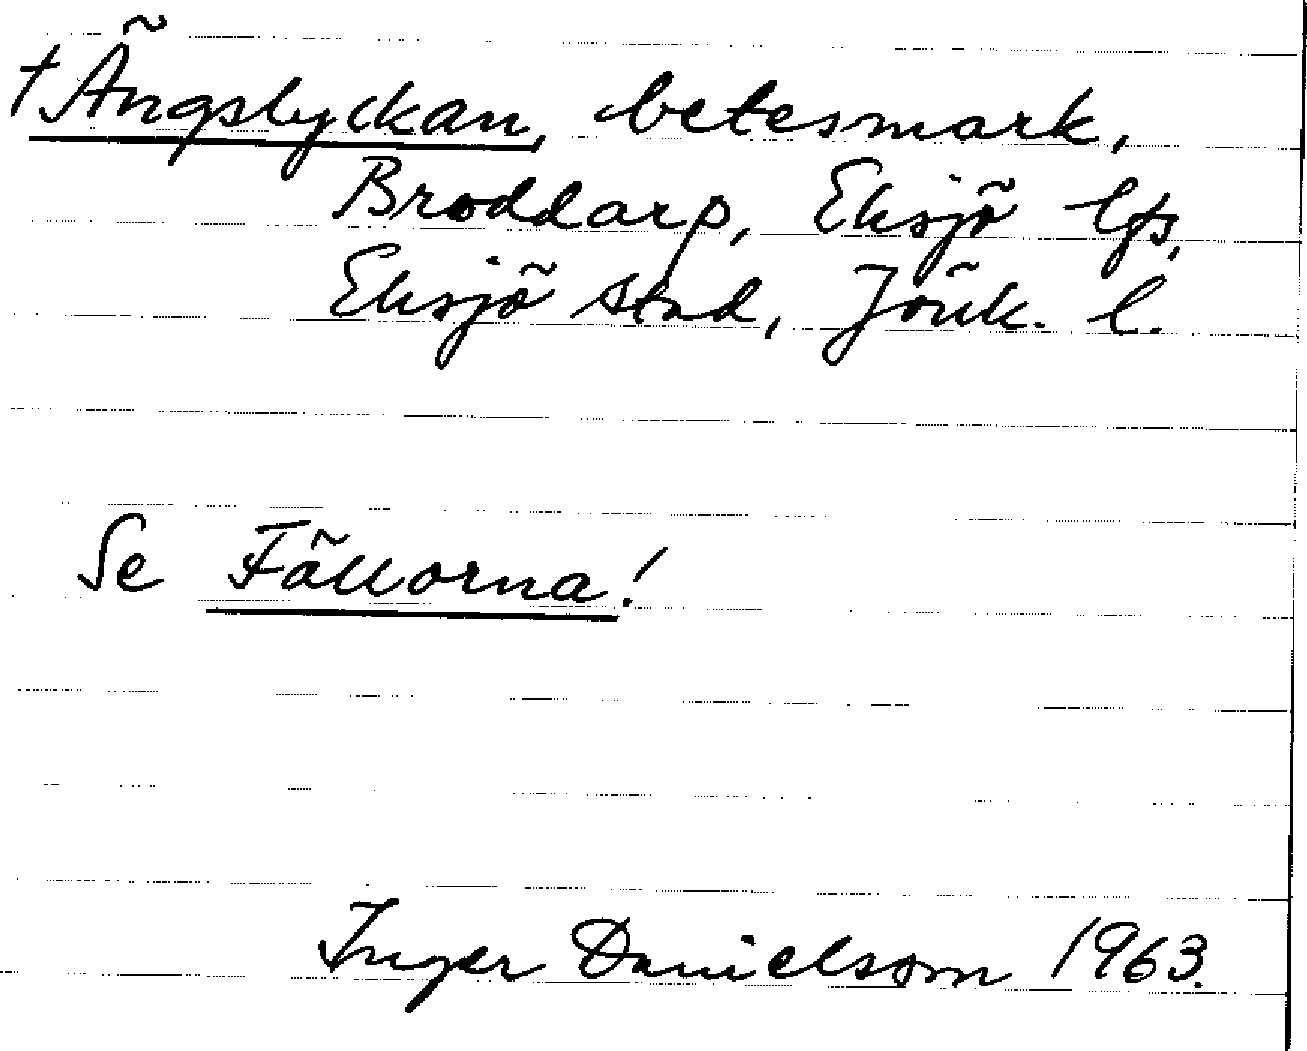 † Ängslyckan, betesmark,
Broddarp, Eksjö lfs,
Eksjö stad, Jönk. l.
Se Fällorna!
Inger Danielsson 1963.